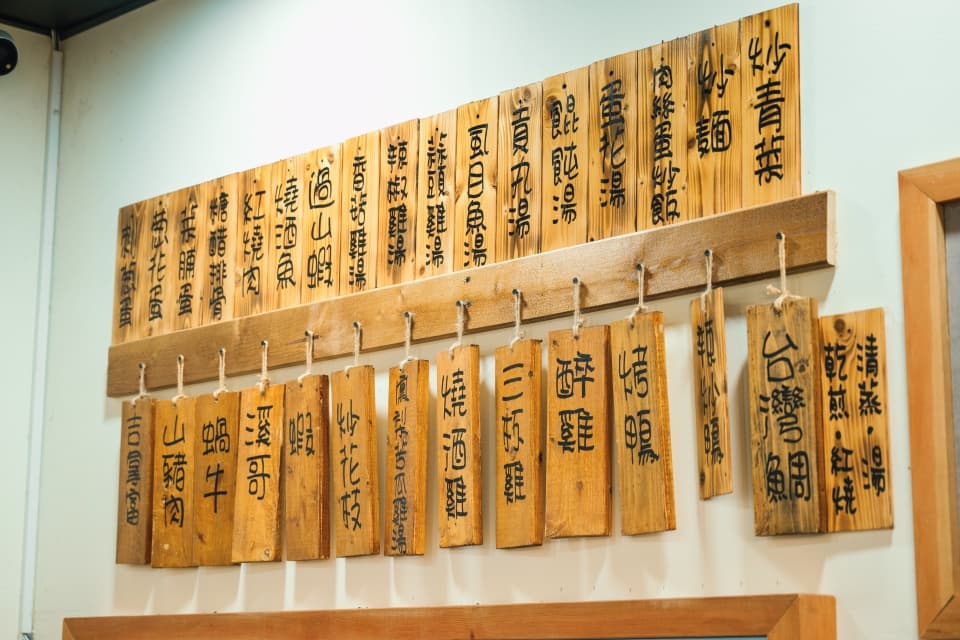 炒青菜
炒麵
肉絲蛋炒飯
蛋花湯
餛飩湯
貢丸湯
虱目魚湯
蒜頭雞湯
辣椒雞湯
香菇雞湯
過山蝦
燒酒魚
紅燒肉
糖醋排骨
菜脯蛋
蔥花蛋
刺蔥蛋
清蒸·湯
乾煎·紅燒
台灣鯛魚
辣炒鴨
烤鴨
醉雞
三杯雞
燒酒雞
苦瓜雞湯
炒花枝
蝦
溪哥
蝸牛
山豬肉
吉拿富